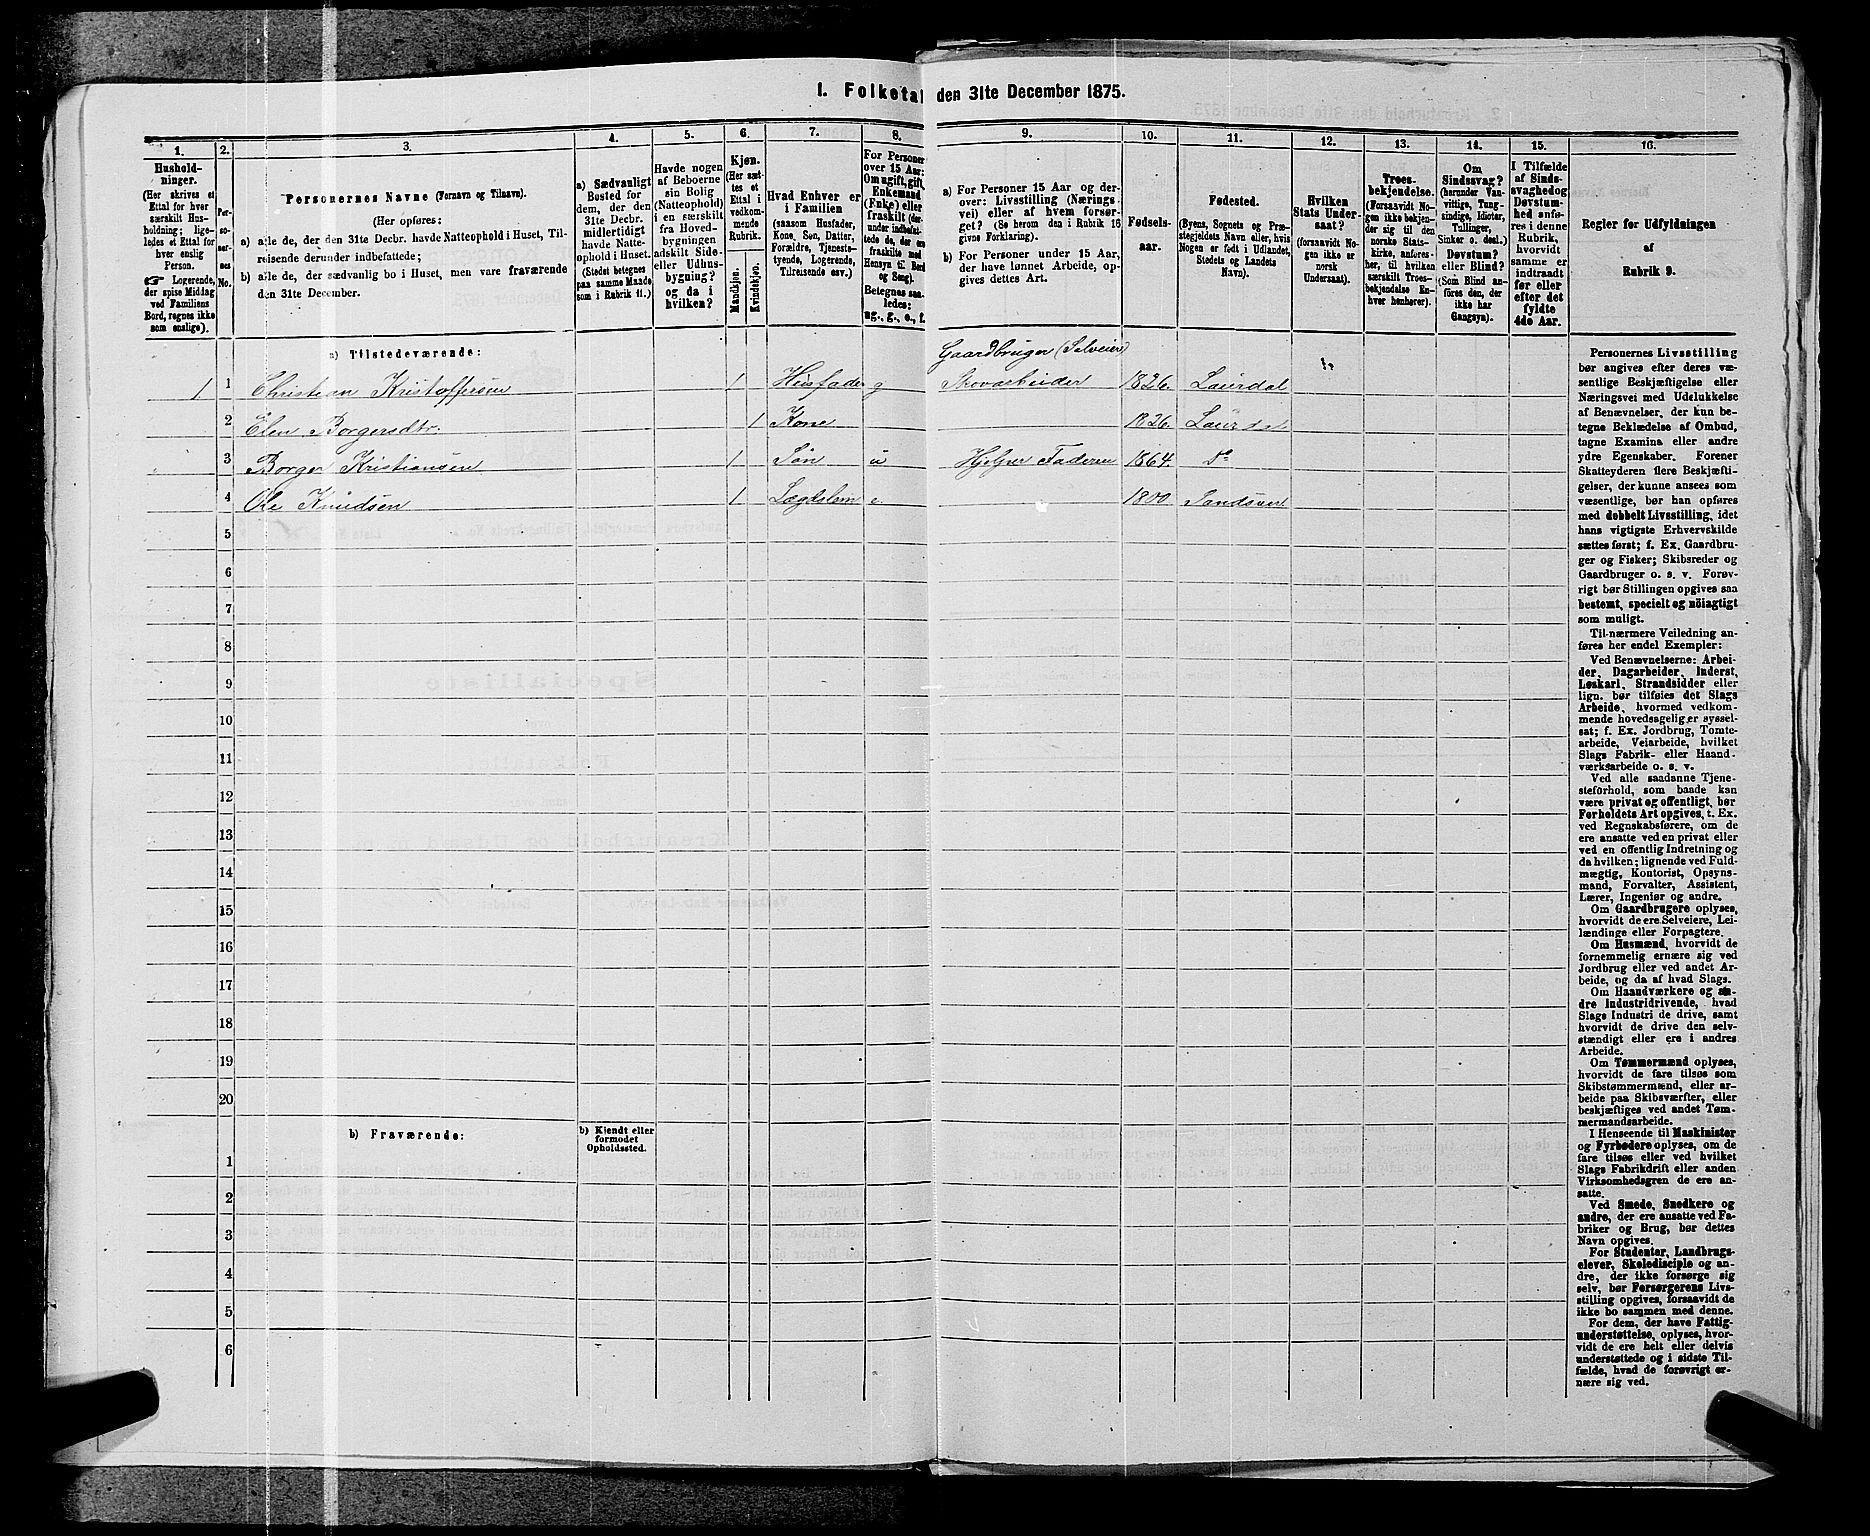 1. Folketal den 31te December 1875.
1.
Hushold-
ninger.
(Her skrives et
Ettal for hver
særskilt Hus-
holdning; lige-
ledes et Ettal for
hver enslig
Person.
☞ Logerende,
der spise Middag
ved Familiens
Bord, regnes ikke
som enslige).
2.
Per-
so-
ner-
nes
No.
3.
Personernes Navne (Fornavn og Tilnavn).
(Her opføres:
a) alle de, der den 31te Decbr. havde Natteophold i Huset, Til-
reisende derunder indbefattede;
b) alle de, der sædvanlig bo i Huset, men vare fraværende
den 31te December.
4.
a) Sædvanligt
Bosted for
dem, der den
31te Decbr.
midlertidigt
havde Natte-
ophold i Huset.
(Stedet betegnes
paa samme Maade
som i Rubrik 11.)
5.
Havde nogen
af Beboerne
sin Bolig
(Natteophold)
i en særskilt
fra Hoved-
bygningen
adskilt Side-
eller Udhus-
bygning?
og da i
hvilken?
6.
Kjøn.
(Her sæt-
tes et
Ettal i
vedkom-
mende
Rubrik.
Mandkjøn.
Kvindekjøn.
7.
Hvad Enhver er
i Familien
(saasom Husfader,
Kone, Søn, Datter,
Forældre, Tjeneste-
tyende, Logerende,
Tilreisende osv.)
8.
For Personer
over 15 Aar:
Om ugift, gift,
Enkemand
(Enke) eller
fraskilt (der-
under indbefat-
tede de, der ere
fraskilte med
Hensyn til Bord
og Seng).
Betegnes saa-
ledes:
ug., g., e., f.
9.
a) For Personer 15 Aar og der-
over: Livsstilling (Nærings-
vei) eller af hvem forsør-
get? (Se herom den i Rubrik 16
givne Forklaring).
b) For Personer under 15 Aar,
der have lønnet Arbeide, op-
gives dettes Art.
10.
Fødsels-
aar.
11.
Fødested.
(Byens, Sognets og Præ-
stegjeldets Navn eller, hvis
Nogen er født i Udlandet,
Stedets og Landets
Navn).
12.
Hvilken
Stats Under-
saat?
(forsaavidt No-
gen ikke er
norsk
Undersaat).
13.
Troes-
bekjendelse.
(Forsaavidt No-
gen ikke bekjen-
der sig til den
norske Stats-
kirke, anføres-
her, til hvilken
særskilt Troes-
bekjendelse En-
hver henhører).
14.
Om
Sindssvag?
(herunder Van-
vittige, Tung-
sindige, Idioter,
Tullinger,
Sinker o. desl.)
Døvstum?
eller Blind?
(Som Blind an-
føres den, der
ikke har
Gangsyn).
15.
I Tilfælde
af Sinds-
svaghed og
Døvstum-
hed anfø-
res i denne
Rubrik,
hvorvidt
samme er
indtraadt
før eller
efter det
fyldte
4de Aar.
16.
Regler for Udfyldningen
af
Rubrik 9.
a) Tilstedeværende:
Gaardbruger (Selveier)
1 1 Christian Kristoffersen 1 Husfader g Skovarbeider 1826. Laurdal
2 Elen Borgersdtr. 1 Kone 1826. Laurdal
3 Borger Kristiansen 1 Søn u Hjelper Faderen 1864. Do
4 Ole Knudsen 1 Lægdslem e. 1800. Sandsvær
5
6
7
8
9
10
11
12
13
14
15
16
17
18
19
20
b) Fraværende:
b) Kjendt eller
formodet
Opholdssted.
1
2
3
4
5
6
Personernes Livsstilling
bør angives efter deres væ-
sentlige Beskjæftigelse eller
Næringsvei med Udelukkelse
af Benævnelser, der kun be-
tegne Beklædelse af Ombud,
tagne Examina eller andre
ydre Egenskaber. Forener
Skatteyderen flere Beskjæfti-
gelser, der kunne ansees som
væsentlige, bør han opføres
med dobbelt Livsstilling, idet
hans vigtigste Erhvervskilde
sættes først; f. Ex. Gaardbru-
ger og Fisker; Skibsreder og
Gaardbruger o. s. v. Forøv-
rigt bør Stillingen opgives saa
bestemt, specielt og nøiagtigt
som muligt.
Til nærmere Veiledning an-
føres her endel Exempler:
Ved Benævnelserne: Arbei-
der, Dagarbeider, Inderst,
Løskarl, Strandsidder eller
lign. bør tilføies det Slags
Arbeide, hvormed vedkom-
mende hovedsagelig er syssel-
sat; f. Ex. Jordbrug, Tomte-
arbeide, Veiarbeide, hvilket
Slags Fabrik- eller Haand-
værksarbeide o. s. v.
Ved alle saadanne Tjene-
steforhold, som baade kan
være privat og offentligt, bør
Forholdets Art opgives, t. Ex.
ved Regnskabsførere, om de
ere ansatte ved en privat eller
ved en offentlig Indretning og
da hvilken; lignende ved Fuld-
mægtig, Kontorist, Opsyns-
mand, Forvalter, Assistent,
Lærer, Ingeniør og andre.
Om Gaardbrugere oplyses,
hvorvidt de ere Selveiere, Lei-
lændinge eller Forpagtere.
Om Husmænd, hvorvidt de
fornemmelig ernære sig ved
Jordbrug eller ved andet Ar-
beide, og da af hvad Slags.
Om Haandværkere og an-
dre Industridrivende, hvad
Slags Industri de drive, samt
hvorvidt de drive den selv-
stændigt eller ere i andres
Arbeide.
Om Tømmermænd oplyses,
hvorvidt de fare tilsøs som
Skibstømmermænd, eller ar-
beide paa Skibsværfter, eller
beskjæftiges ved andet Tøm-
mermandsarbeide.
I Henseende til Maskinister
og Fyrbødere oplyses, om de
fare tilsøs eller ved hvilket
Slags Fabrikdrift eller anden
Virksomhedsgren de ere an-
satte.
Ved Smede, Snedkere og
andre, der ere ansatte ved Fa-
briker og Brug, bør dettes
Navn opgives.
For Studenter, Landbrugs-
elever, Skoledisciple og an-
dre, der ikke forsørge sig
selv, bør Forsørgerens Livs-
stilling opgives, forsaavidt de
ikke bo sammen med denne.
For dem, der have Fattig-
understøttelse, oplyses, hvor-
vidt de ere helt eller delvis
understøttede og i sidste Til-
fælde, hvad de forøvrigt er-
nære sig ved.